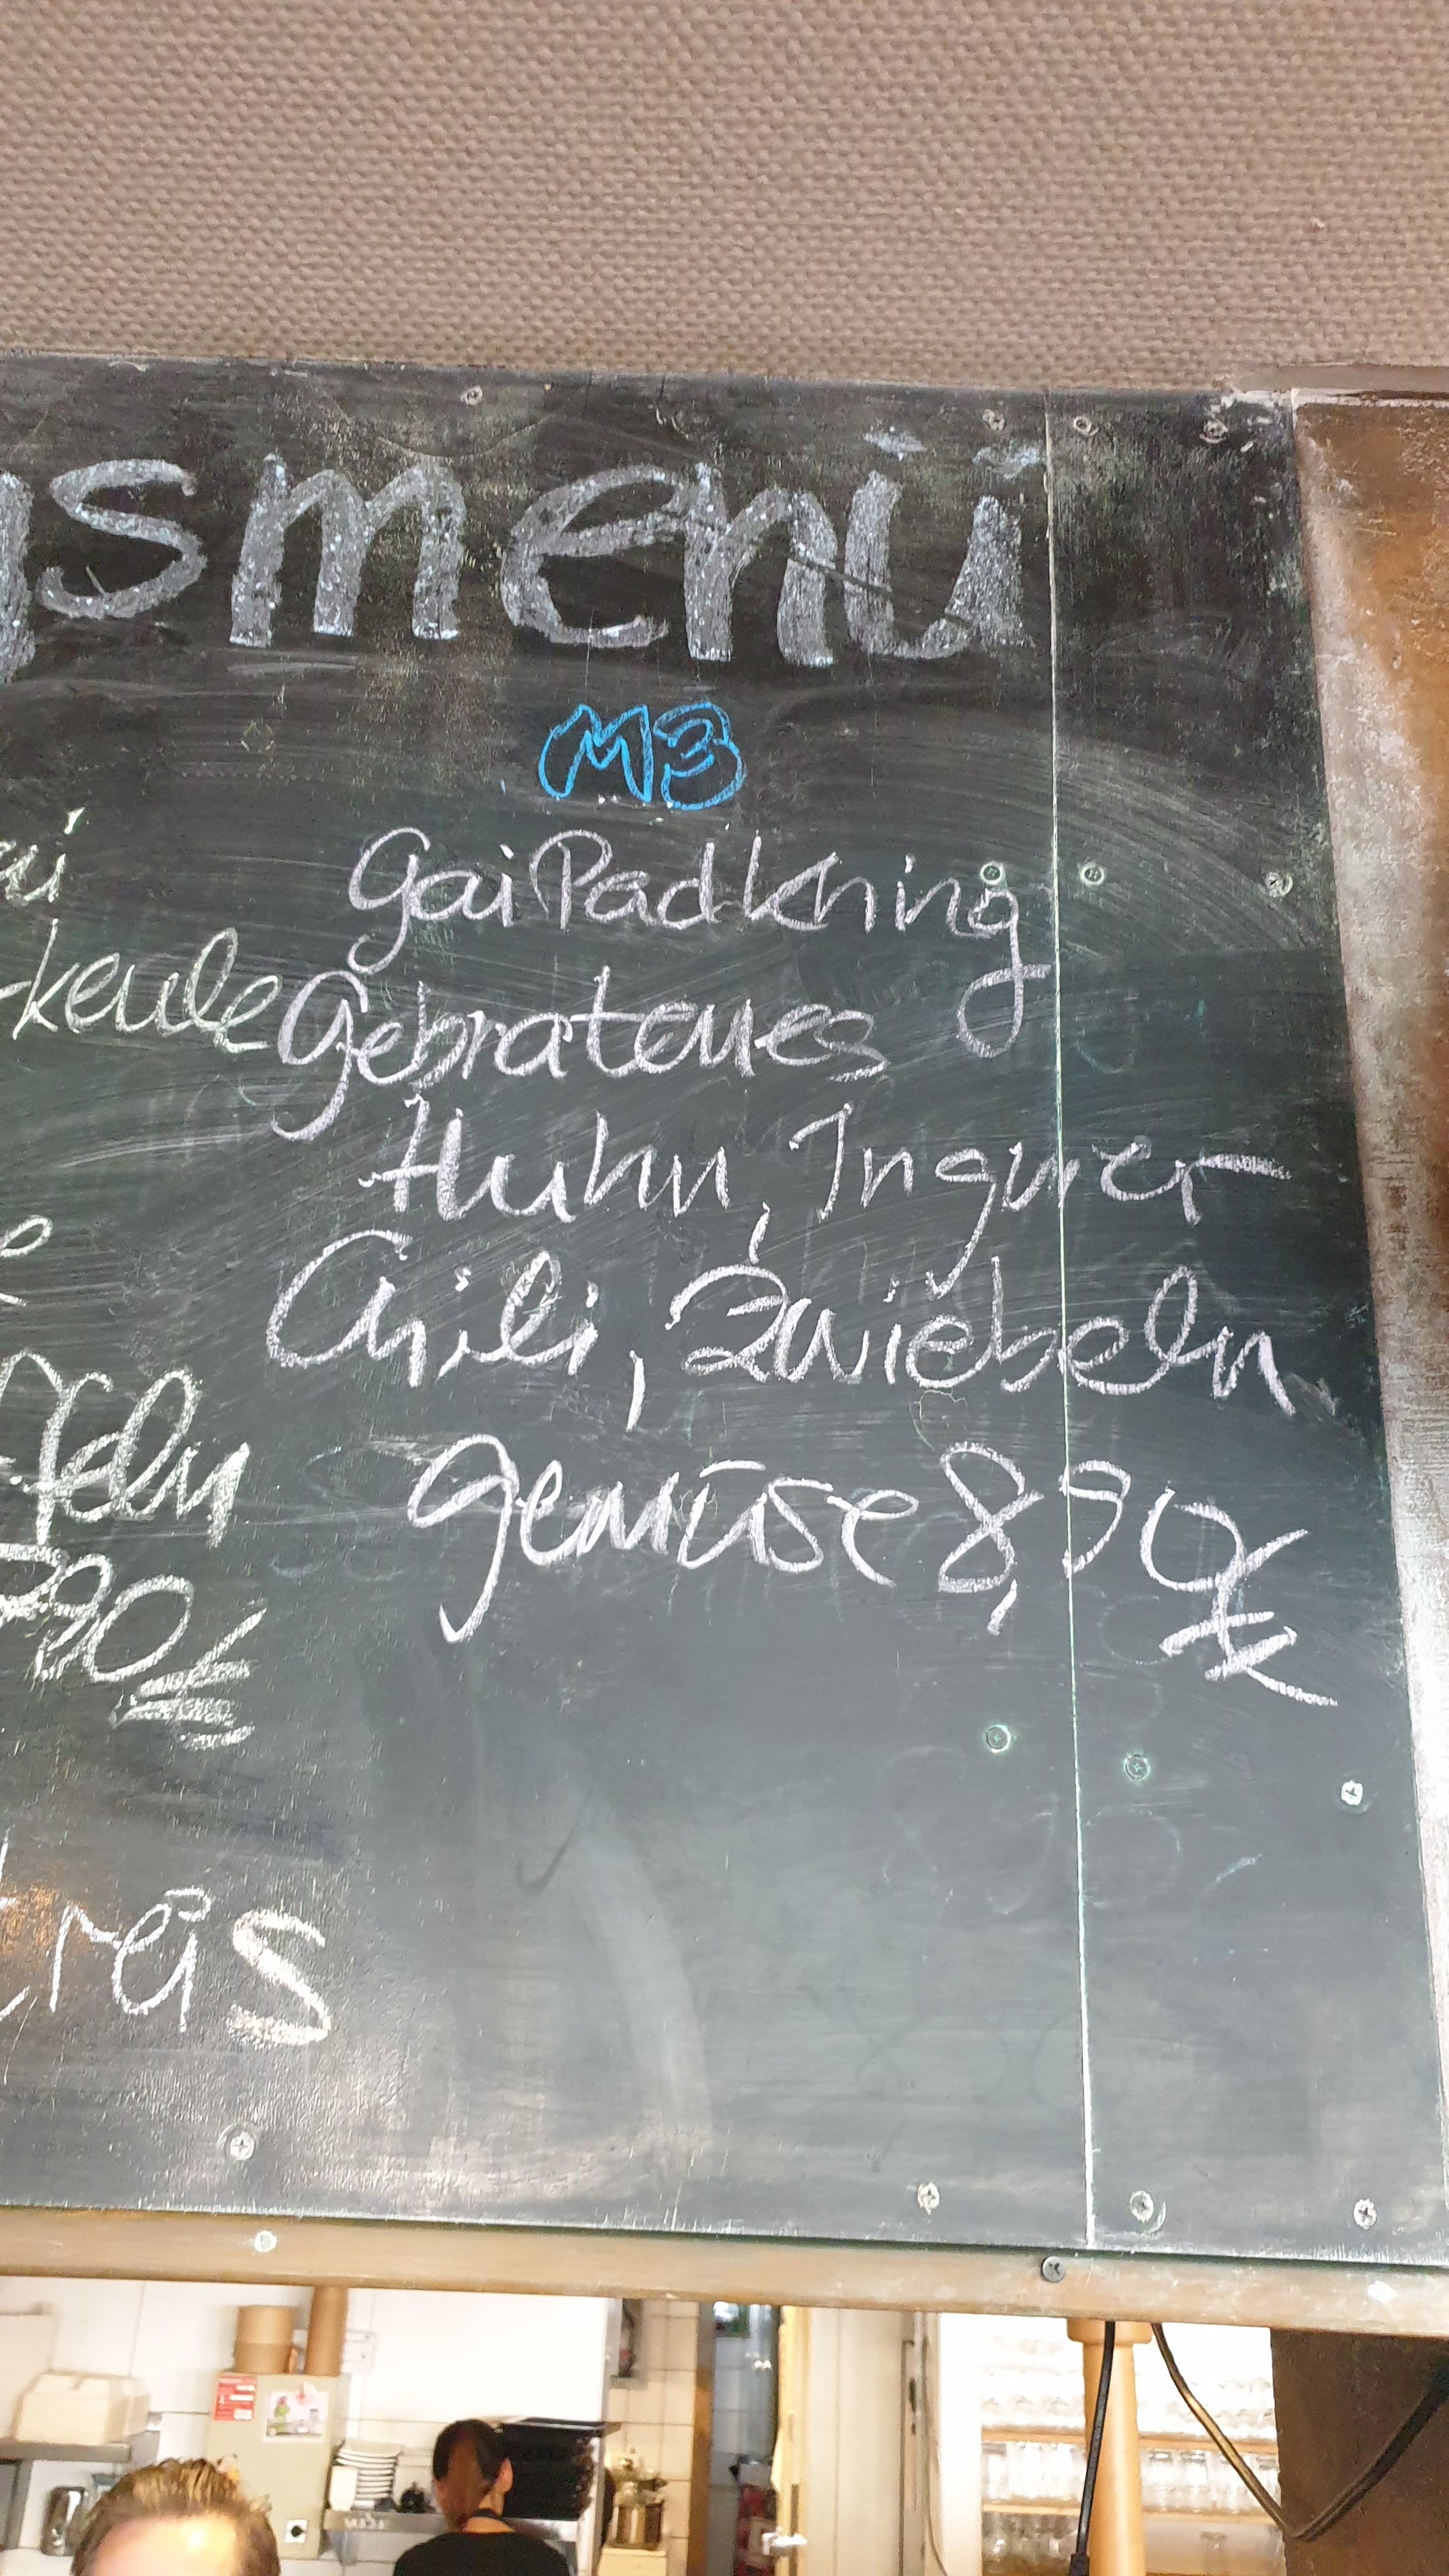 gsmenü
M3
Gai Pad Khing
Gebratenes
Huhn, Ingwer
Chili, Zwiebeln
Gemüse 8,90€
ai
-keule
e
feln
,90€
reis